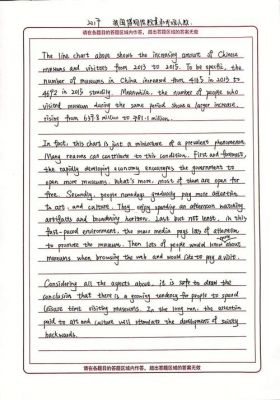 2017 我国博物馆数量和参观人数
请在各题目的答题区域内作答，超出答题区域的答案无效
The line chart above shows the increasing amount of Chinese
museums and visitors from 2013 to 2015. To be specific, the
number of museums in China increased from 4,165 in 2013 to
4692 in 2015 steadily. Meanwhile, the number of people who
visited museum during the same period shows a larger increase,
rising from 637.8 million to 781.1 million.
In fact, this chart is just a miniature of a prevalent phenomenon.
Many reasons can contribute to this condition. First and foremost,
the rapidly developing economy encourages the government to
open more museums. What's more, most of them are open for
free. Secondly, people nowadays gradually pay more attention
to art and culture. They enjoy spending an afternoon watching
artifacts and broadening horizons. Last but not least, in this
fast-paced environment, the mass media pays lots of attention
to promote the museum. Then lots of people would learn about
museums when browsing the web and would like to pay a visit.
Considering all the aspects above, it is safe to draw the
conclusion that there is a growing tendency for people to spend
leisure time visiting museums. In the long run, the attention
paid to art and culture will stimulate the development of society
backwards.
请在各题目的答题区域内作答，超出答题区域的答案无效